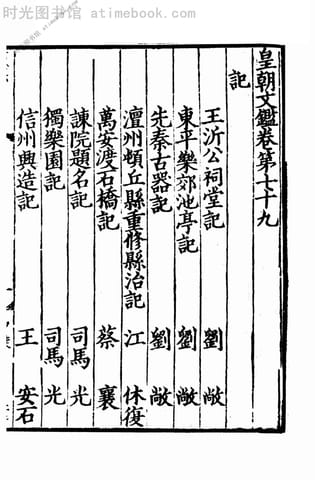 时光图书馆 - www.atimebook.com
皇朝文鑑卷第七十九
記
王沂公祠堂記 劉敞
東平樂郊池亭記 劉敞
先秦古器記 劉敞
澶州頓丘縣重修縣治記 江休復
萬安渡石橋記 蔡襄
諫院題名記 司馬光
獨樂園記 司馬光
信州興造記 王安石
时光图书馆 - www.atimebook.com